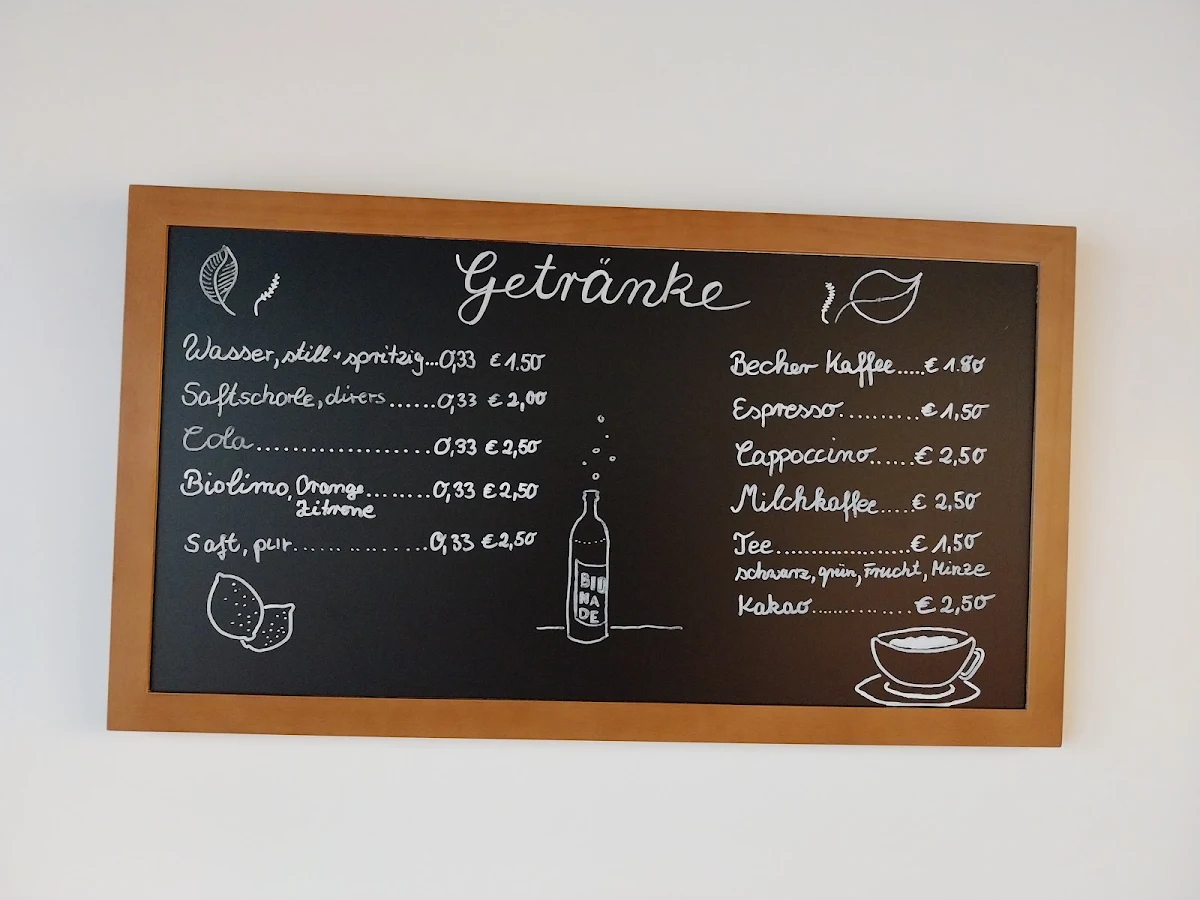 Getränke
Wasser, still + spritzig...0,33 € 1.50
Saftschorle, divers......0,33 € 2,00
Cola......................0,33 € 2,50
Biolimo, Orange........0,33 € 2,50
Zitrone
Saft, pur.................0,33 € 2,50
BIO
NA
DE
Becher Kaffee.....€ 1.80
Espresso..........€ 1,50
Cappoccino......€ 2,50
Milchkaffee....€ 2,50
Tee.................€ 1,50
schwarz, grün, Frucht, Minze
Kakao............€ 2,50